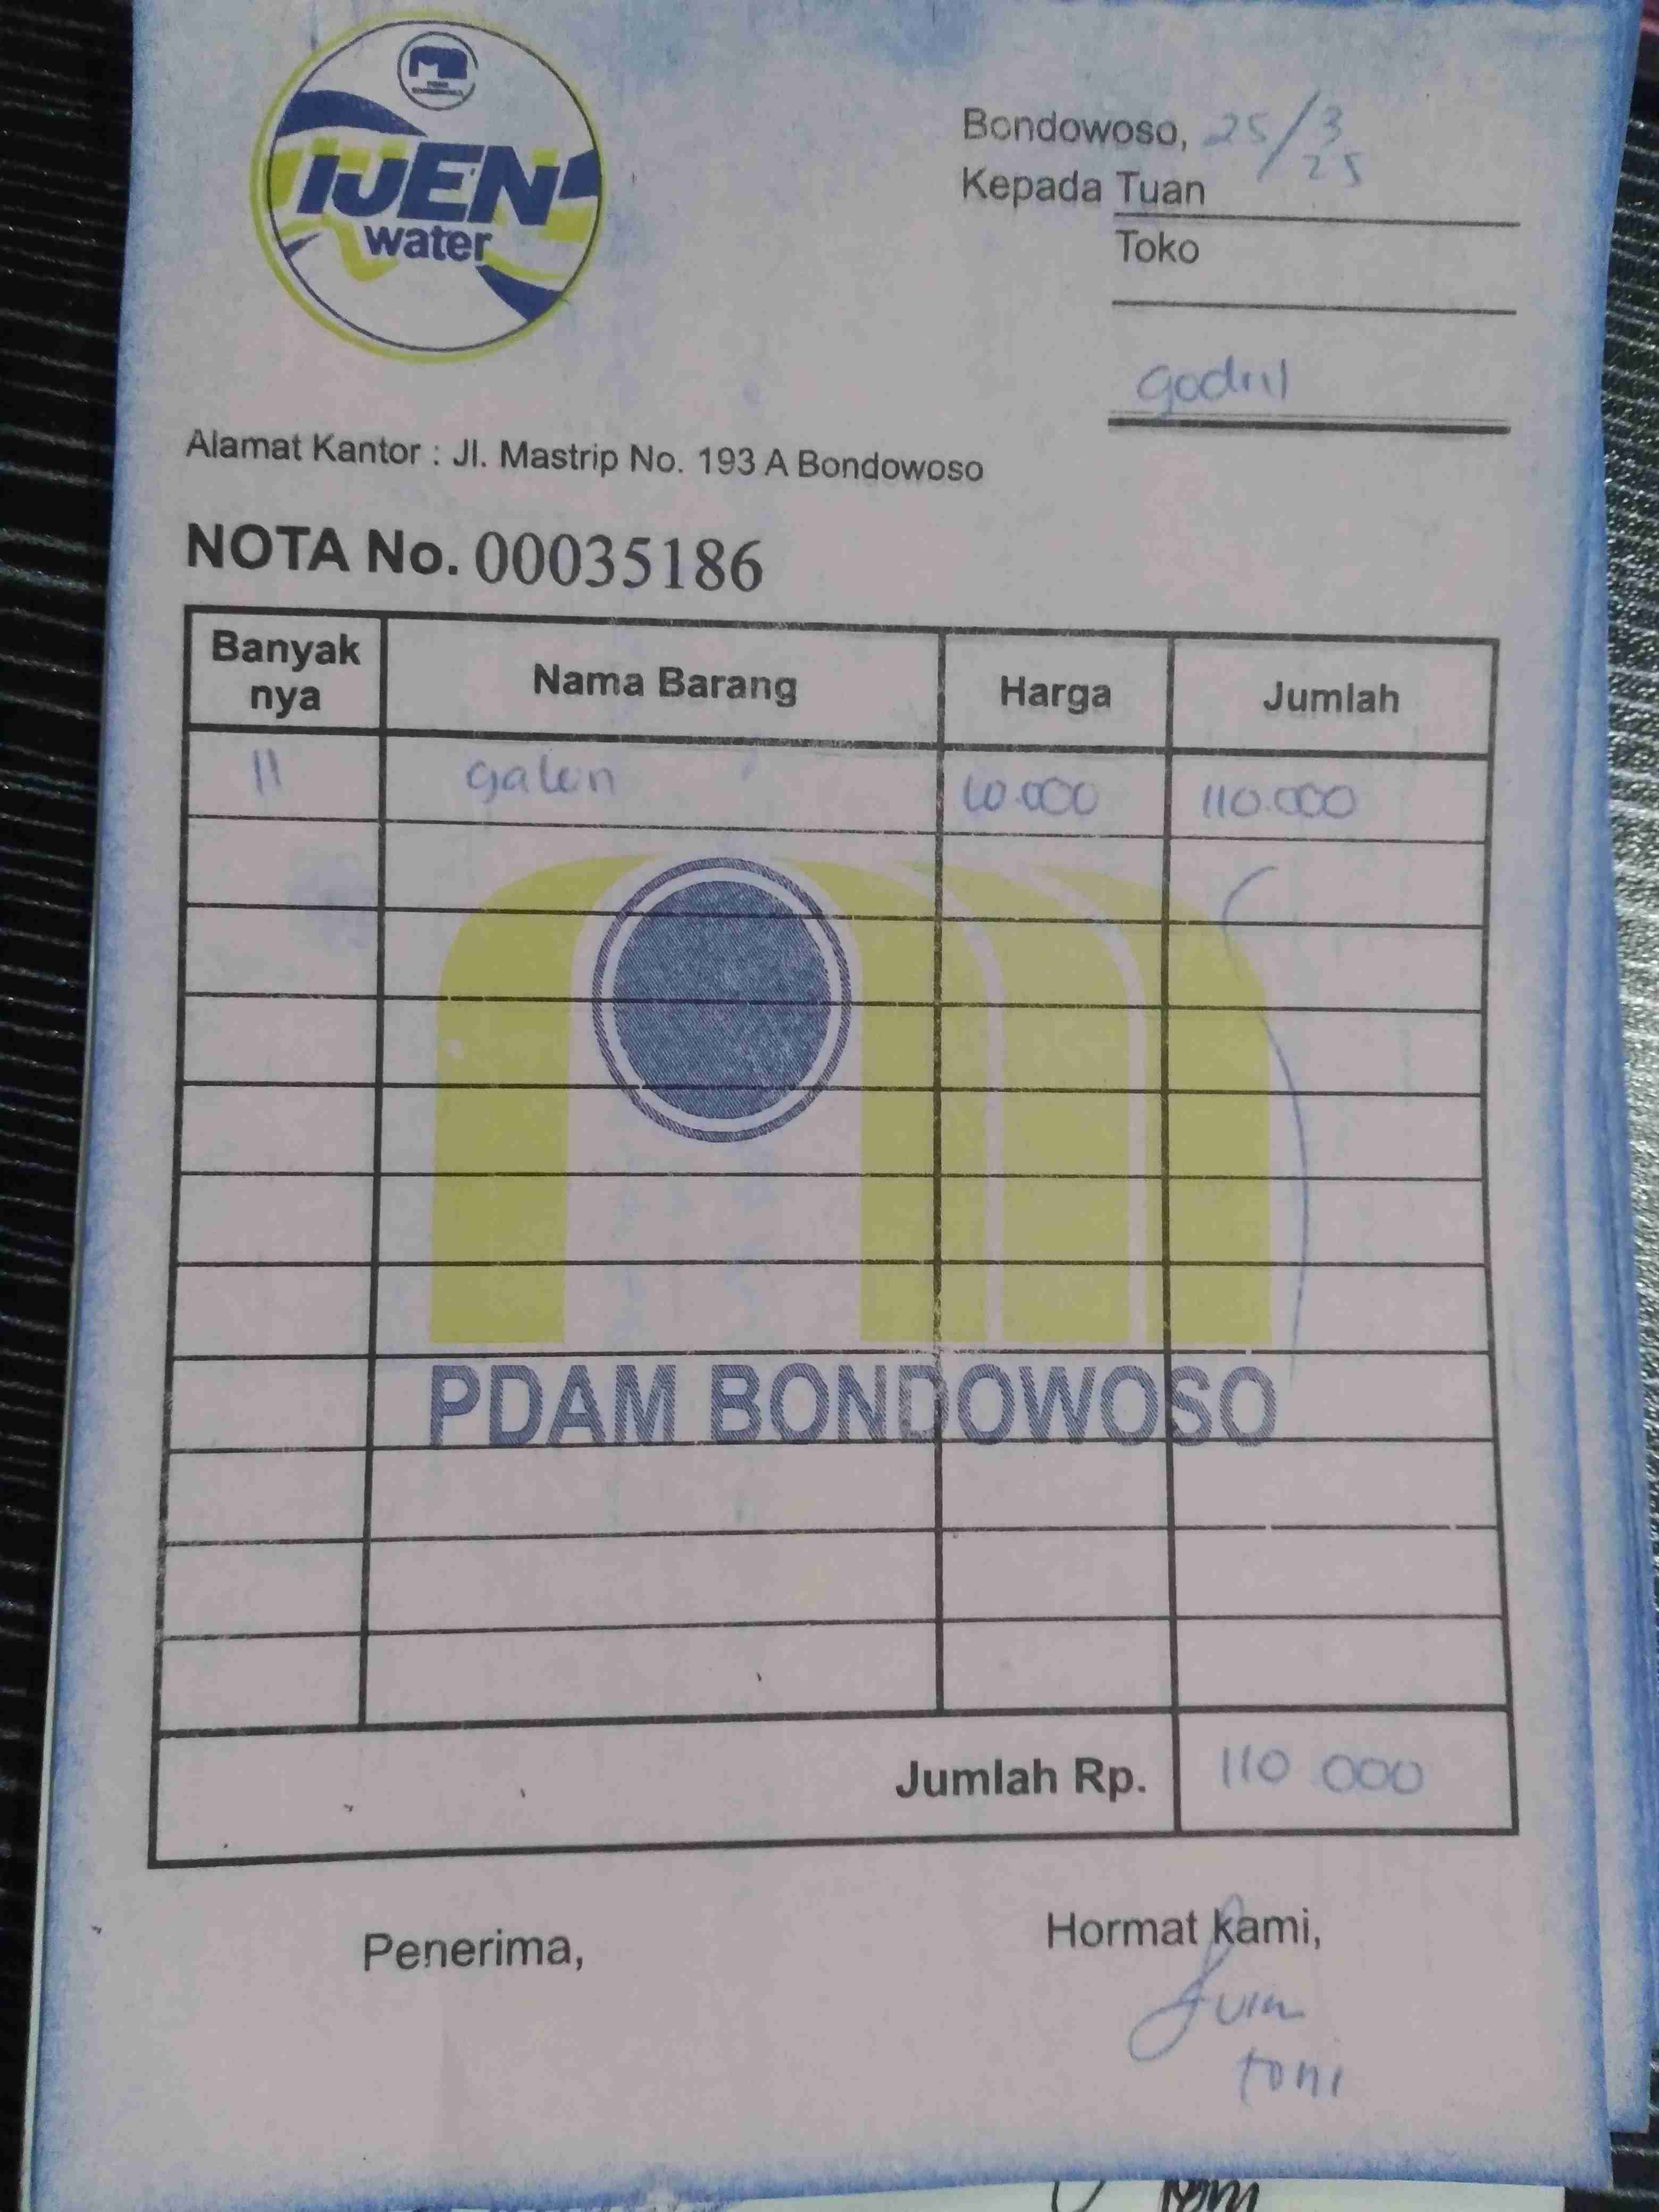 IJEN
water
Bondowoso, 25/3
25
Kepada Tuan
Toko
godril
Alamat Kantor : Jl. Mastrip No. 193 A Bondowoso
NOTA No. 00035186
Banyak nya Nama Barang Harga Jumlah
11 galon 10.000 110.000
PDAM BONDOWOSO
Jumlah Rp. 110 000
Penerima, Hormat kami,
toni